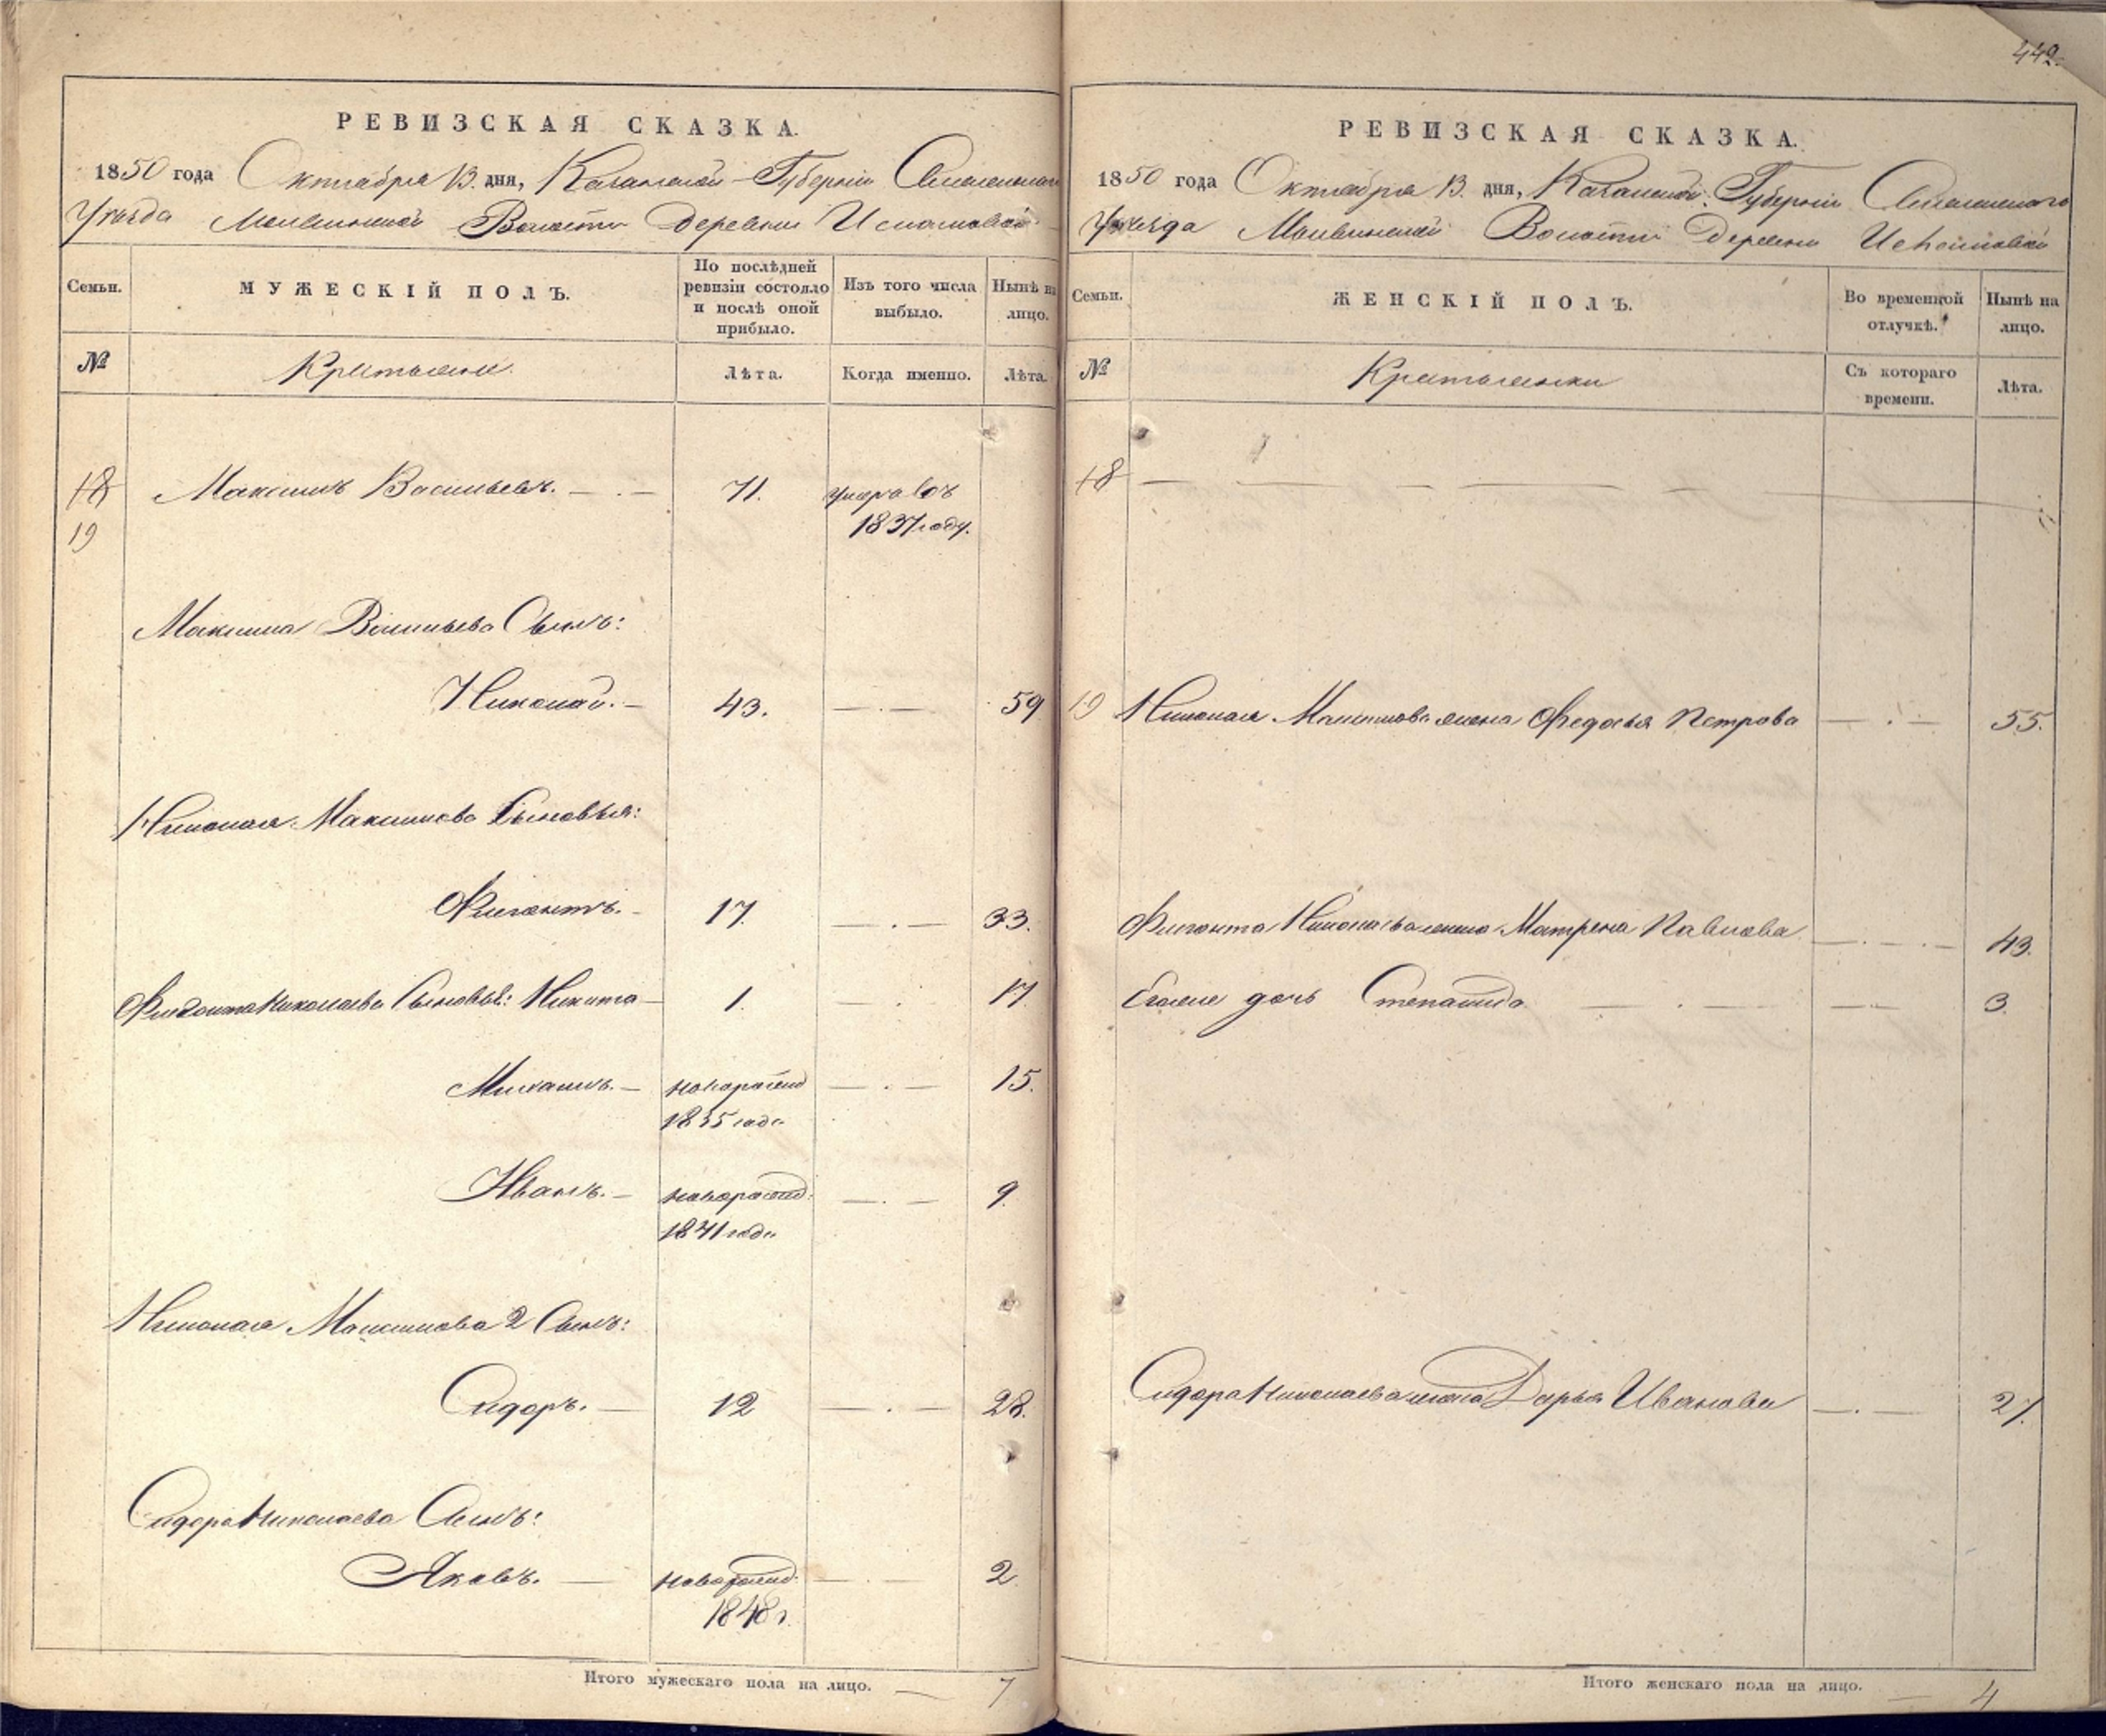 442.
РЕВИЗСКАЯ СКАЗКА.
1850 года Октября 13. дня, Казанской Губерніи
Уѣзда Волости деревни
Семьи.
МУЖЕСКІЙ ПОЛЪ.
По послѣдней ревизіи состояло и послѣ оной прибыло.
Изъ того числа выбыло.
Нынѣ на лицо.
№
Лѣта.
Когда именно.
Лѣта.
18 Максимъ Васильевъ. 71. умеръ въ
19 1837 году.
Максима Васильева Сынъ:
Николай. 43. 59
Николая Максимова Сыновья:
17. 33.
Николаева Сыновья: Никита 1. 17.
Михаилъ. новорожд 15.
1835 года
Иванъ. новорожд. 9.
1841 года
Николая Максимова 2 Сынъ:
Сидоръ. 12 28.
Сидора Николаева Сынъ:
Яковъ. новорожд. 2
1848 г.
Итого мужескаго пола на лицо. 7
РЕВИЗСКАЯ СКАЗКА.
1850 года Октября 13. дня, Казанской Губерніи
Уѣзда Волости Деревни
Семьи.
ЖЕНСКІЙ ПОЛЪ.
Во временной отлучкѣ.
Нынѣ на лицо.
№
Съ котораго времени.
Лѣта.
18
19 Николая Максимова жена Федосья Петрова 55.
Николаева жена Матрена Павлова 43.
дочь Степанида 3.
Сидора Николаева жена Дарья Иванова 27.
Итого женскаго пола на лицо. 4